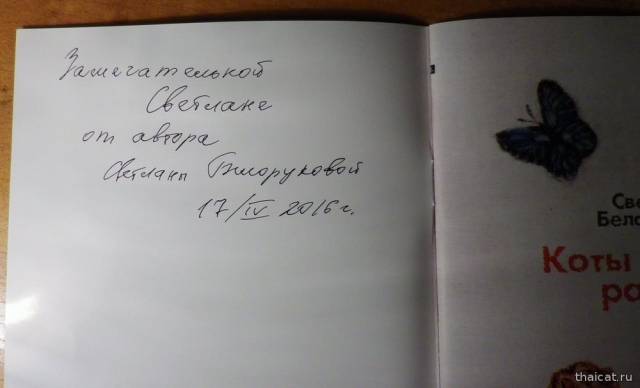 Замечательной
Светлане
от автора
Светланы Белоруковой
17/IV 2016 г.
Све
Бело
Коты
ра
thaicat.ru